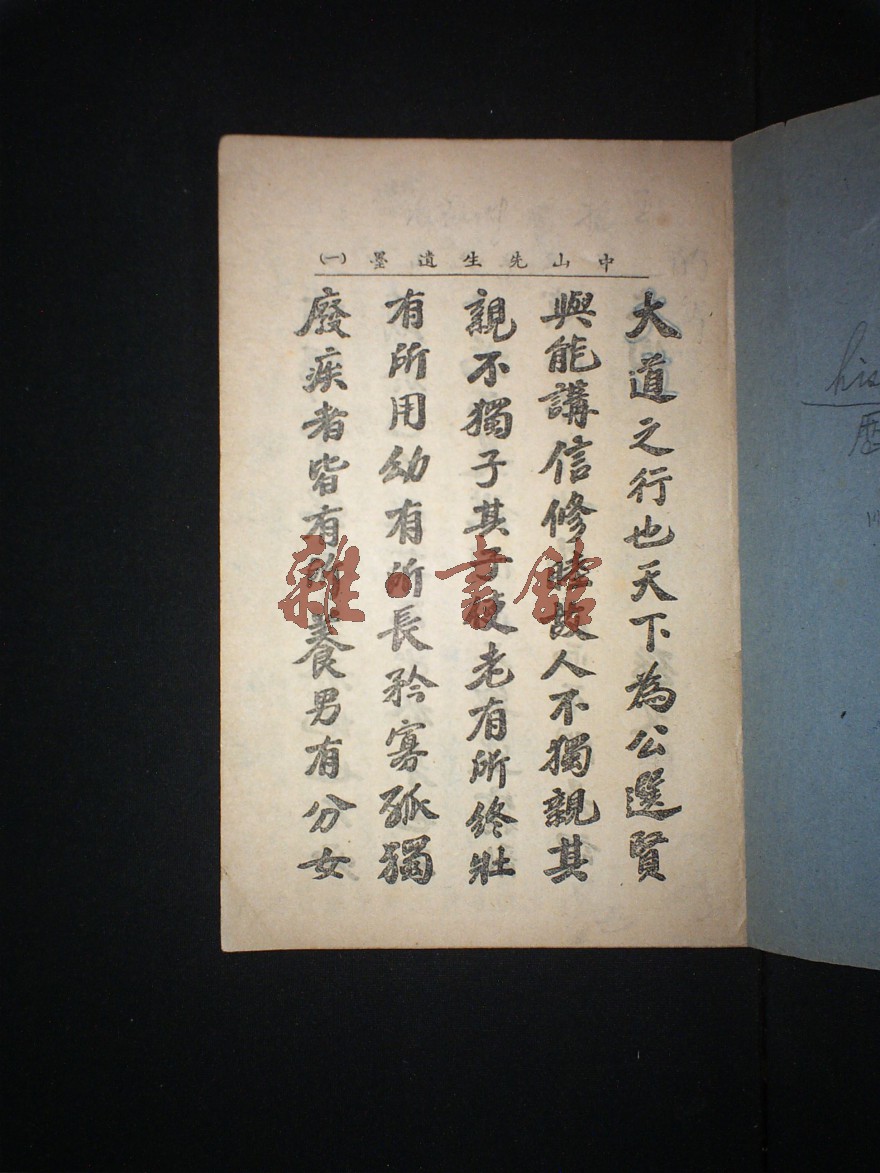 中山先生遺墨(一)
大道之行也天下為公選賢
與能講信修睦故人不獨親其
親不獨子其子使老有所終壯
有所用幼有所長矜寡孤獨
廢疾者皆有所養男有分女
雜·書館
his
歷